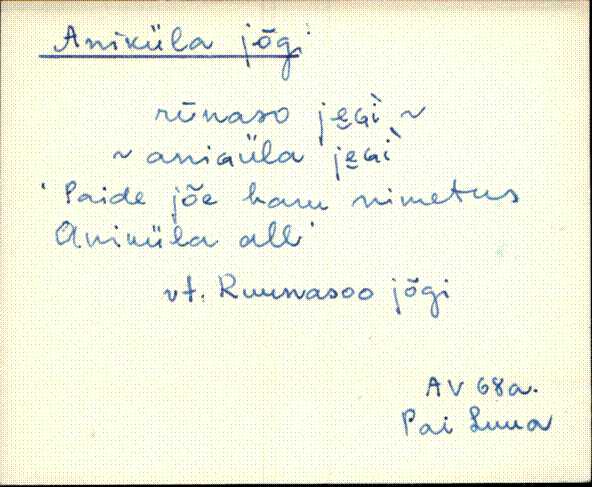 Aniküla jõgi
rūnaso je̮Gì ~
~ aniGüla je̮Gì
'Paide jõe haru nimetus
Aniküla all'
vt. Ruunasoo jõgi
AV 68a.
Pai Luua